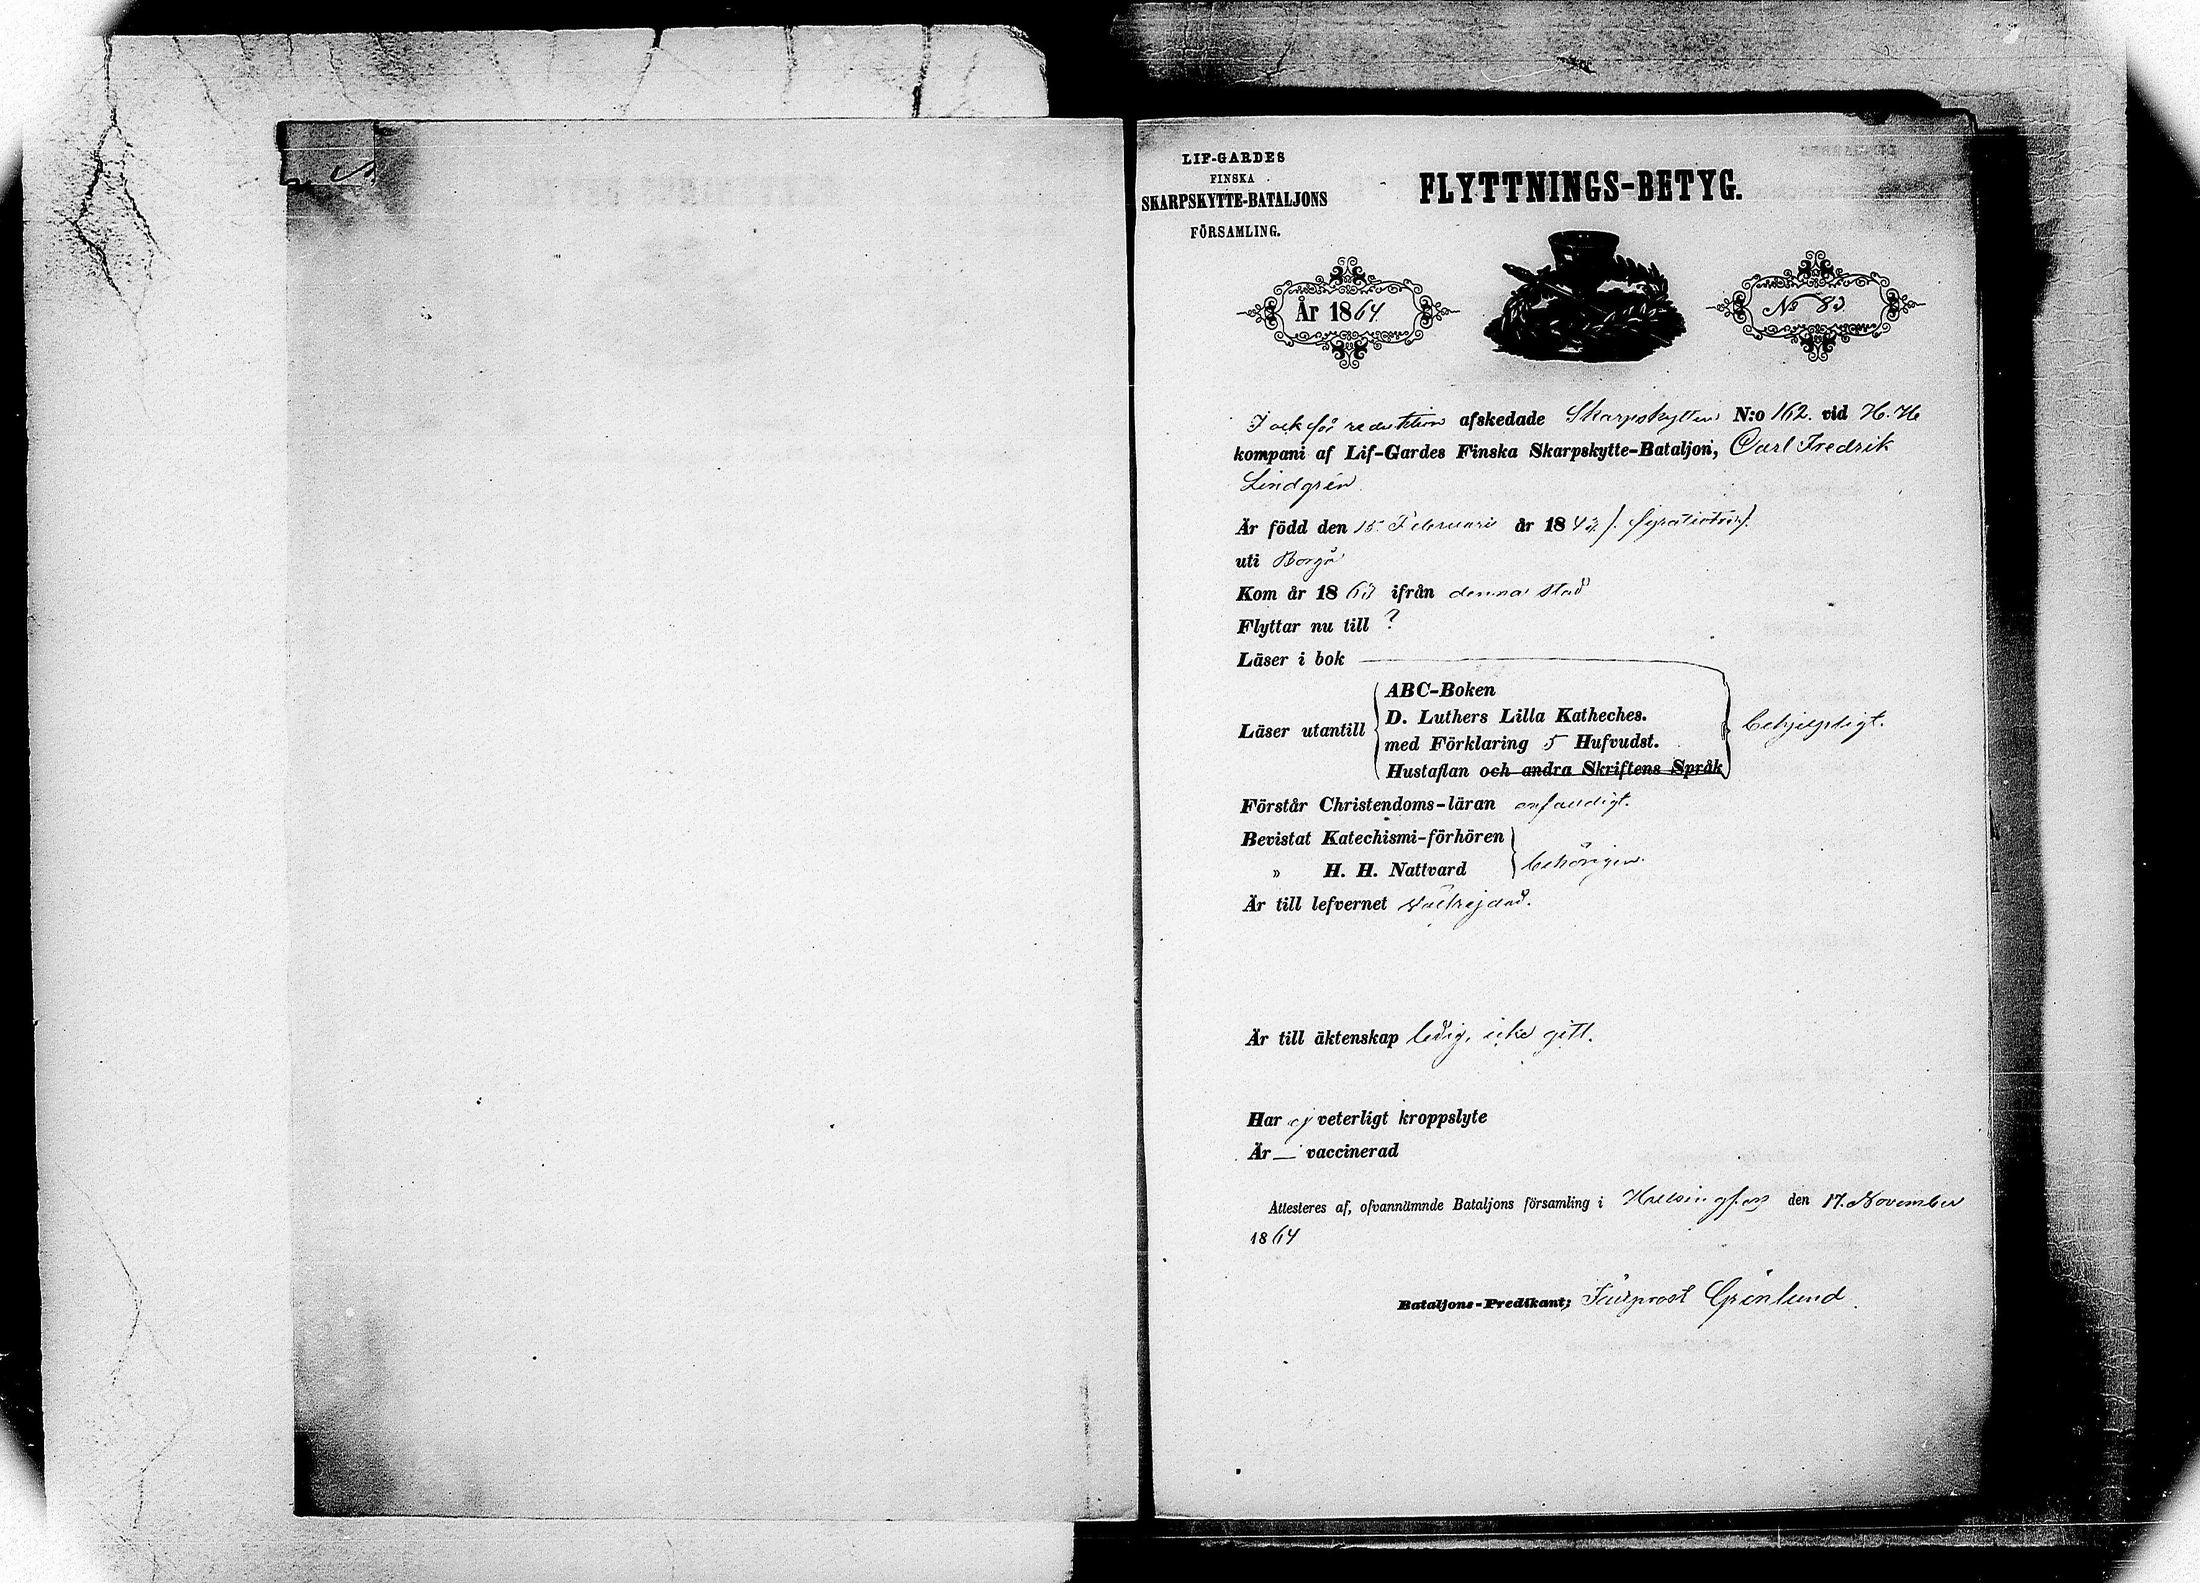 LIF-GARDES
FINSKA
SKARPSKYTTE-BATALJONS
FÖRSAMLING.
FLYTTNINGS-BETYG.
År 1864
No 83
I och för reduktion afskedade Skarpskytten N:o 162. vid H. H
kompani af Lif-Gardes Finska Skarpskytte-Bataljon, Carl Fredrik
Lindgrén
Är född den 15. Februari år 1843
uti Borgå
Kom år 1863 ifrån denna stad
Flyttar nu till ?
Läser i bok
Läser utantill
ABC-Boken
D. Luthers Lilla Katheches.
med Förklaring 5 Hufvudst.
Hustaflan och andra Skriftens Språk
behjelpligt.
Förstår Christendoms-läran enfaldigt.
Bevistat Katechismi-förhören
„ H. H. Nattvard
behörigen.
Är till lefvernet välfrejdad.
Är till äktenskap ledig, icke gift.
Har ej veterligt kroppslyte
Är — vaccinerad
Attesteras af, ofvannämnde Bataljons församling i Helsingfors den 17. November
1864
Bataljons-Predikant; Fältprost Grönlund.